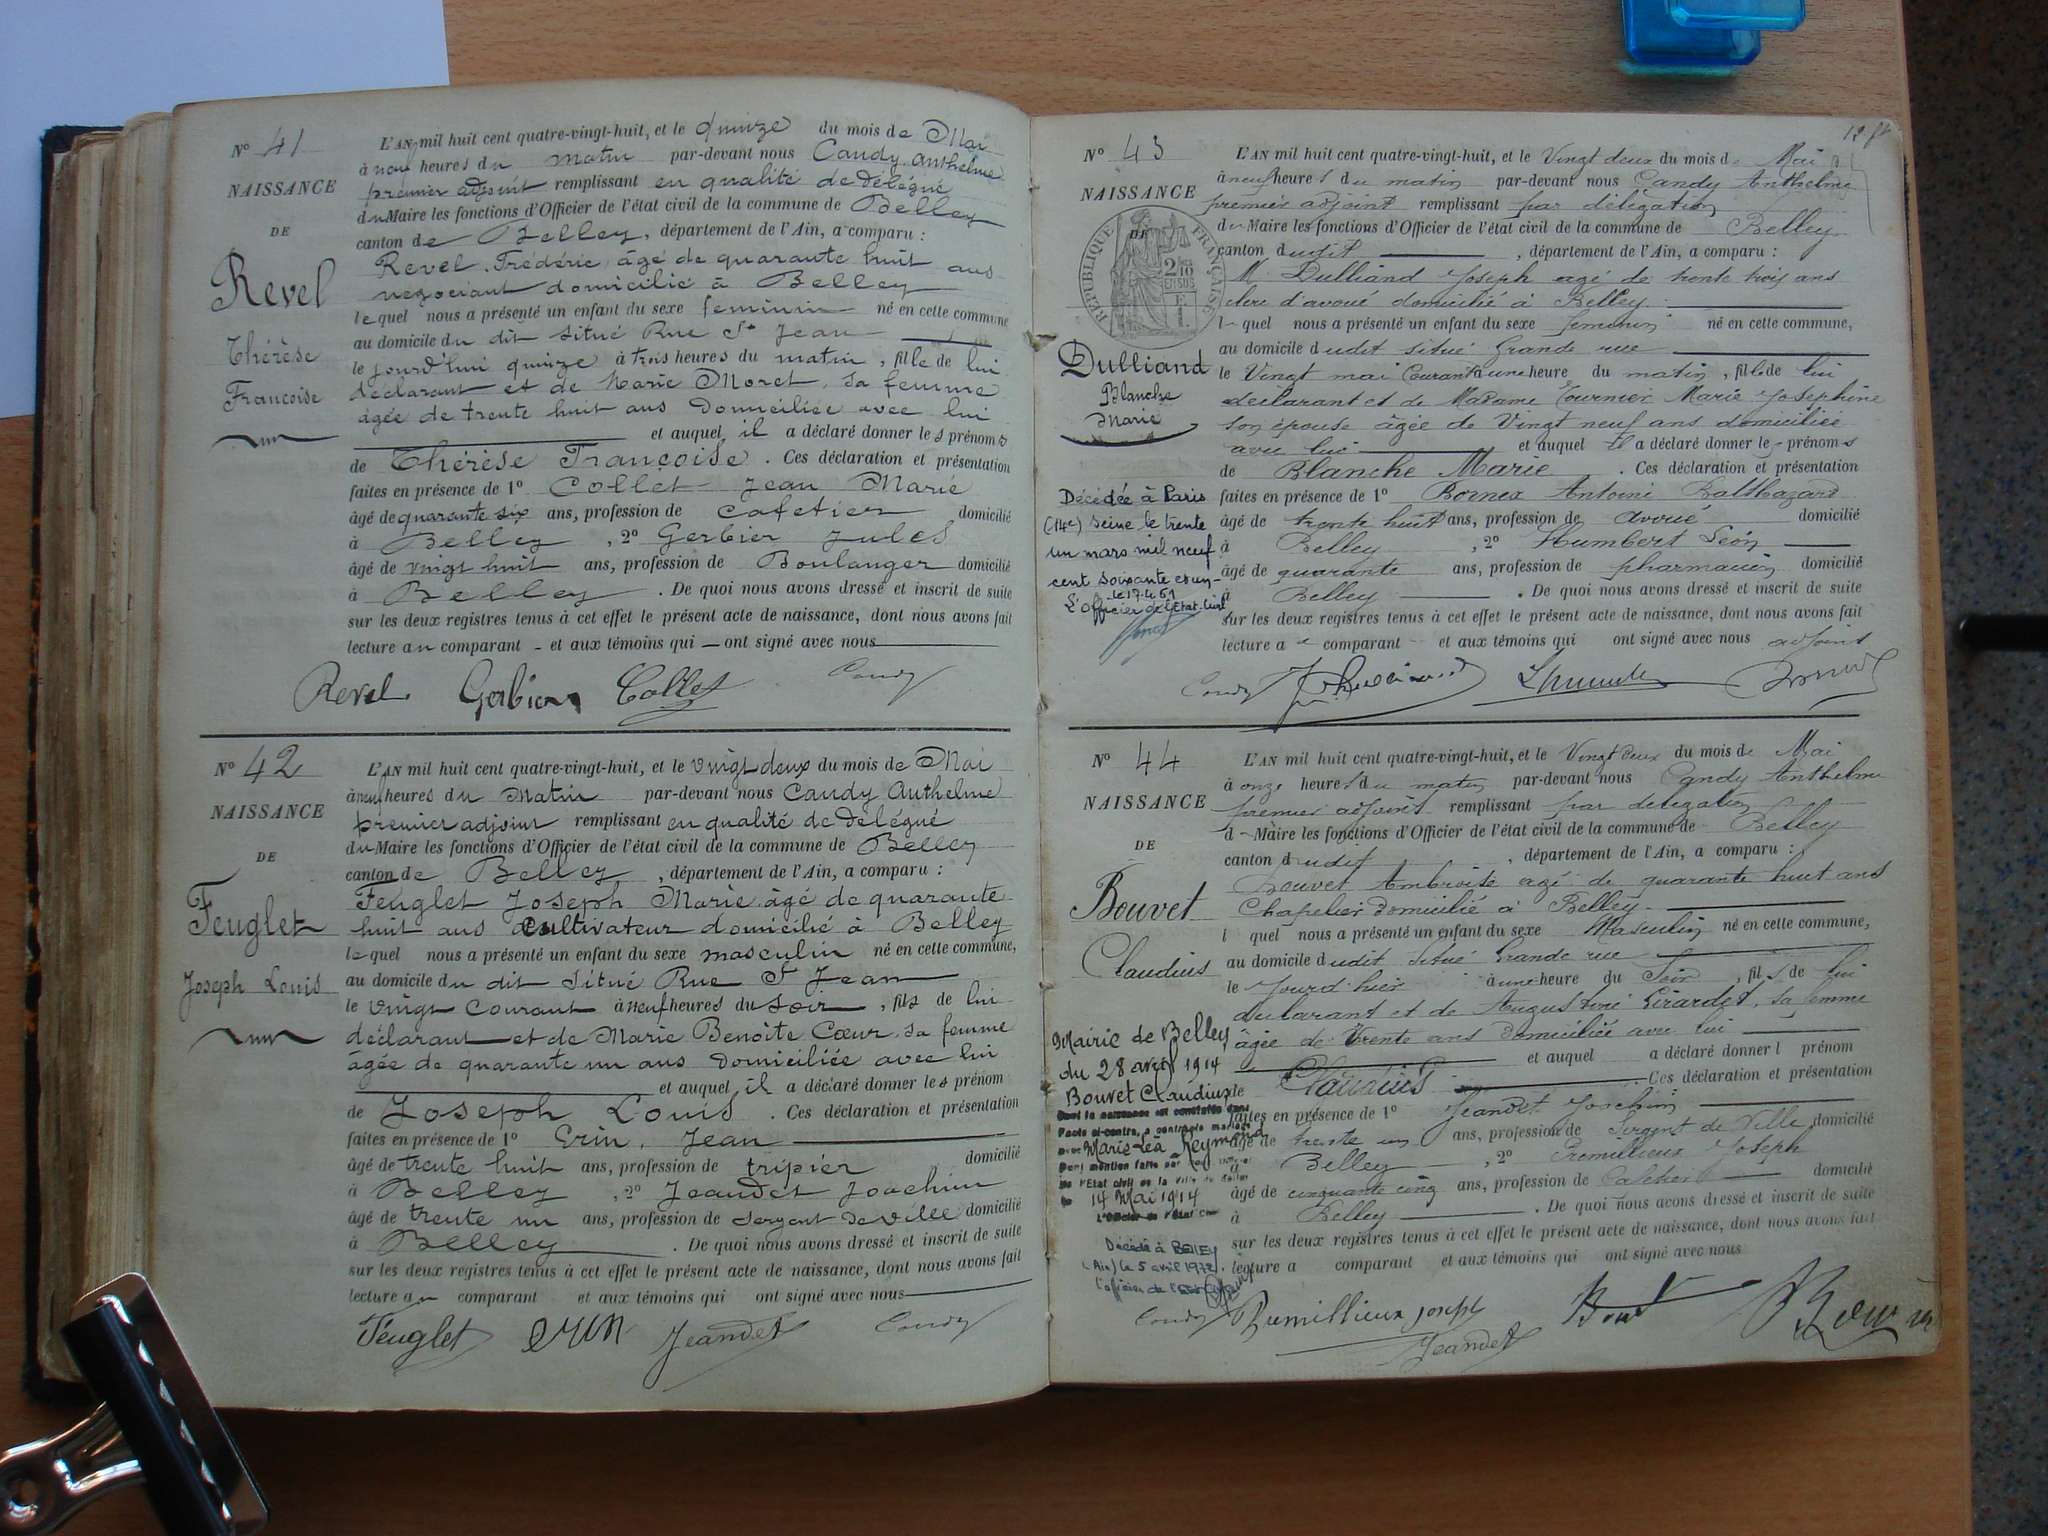 N° 41
NAISSANCE
DE
Revel
Thérèse
Françoise
L'AN mil huit cent quatre-vingt-huit, et le quinze du mois de Mai
à neuf heures du matin par-devant nous Candy Anthelme
premier adjoint remplissant en qualité de délégué
du Maire les fonctions d'Officier de l'état civil de la commune de Belley
canton de Belley, département de l'Ain, a comparu :
Revel Frédéric âgé de quarante huit ans
négociant domicilié à Belley
lequel nous a présenté un enfant du sexe feminin né en cette commune
au domicile du dit situé Rue St Jean
le jourd'hui quinze à trois heures du matin, fille de lui
déclarant et de Marie Moret, sa femme
âgée de trente huit ans domiciliée avec lui
et auquel il a déclaré donner les prénoms
de Thérèse Françoise. Ces déclaration et présentation
faites en présence de 1° Collet Jean Marie
âgé de quarante six ans, profession de cafetier domicilié
à Belley, 2° Gerbier Jules
âgé de vingt huit ans, profession de Boulanger domicilié
à Belley. De quoi nous avons dressé et inscrit de suite
sur les deux registres tenus à cet effet le présent acte de naissance, dont nous avons fait
lecture au comparant - et aux témoins qui - ont signé avec nous
Revel Gerbier Collet Candy
N° 42
NAISSANCE
DE
Feuglet
Joseph Louis
L'AN mil huit cent quatre-vingt-huit, et le vingt deux du mois de Mai
à neuf heures du Matin par-devant nous Candy Anthelme
premier adjoint remplissant en qualité de délégué
du Maire les fonctions d'Officier de l'état civil de la commune de Belley
canton de Belley, département de l'Ain, a comparu :
Feuglet Joseph Marie âgé de quarante
huit ans cultivateur domicilié à Belley
lequel nous a présenté un enfant du sexe masculin né en cette commune,
au domicile du dit situé Rue St Jean
le vingt courant à neuf heures du soir, fils de lui
déclarant et de Marie Benoîte Cœur sa femme
âgée de quarante un ans domiciliée avec lui
et auquel il a déclaré donner les prénom
de Joseph Louis. Ces déclaration et présentation
faites en présence de 1° Erin, Jean
âgé de trente huit ans, profession de tripier domicilié
à Belley, 2° Jeandet Joachim
âgé de trente un ans, profession de sergent de ville domicilié
à Belley. De quoi nous avons dressé et inscrit de suite
sur les deux registres tenus à cet effet le présent acte de naissance, dont nous avons fait
lecture au comparant et aux témoins qui ont signé avec nous
Feuglet Erin Jeandet Candy
N° 43
NAISSANCE
DE
RÉPUBLIQUE FRANÇAISE
2/10 EN SUS
Dulliand
Blanche
Marie
Décédée à Paris
(14e) Seine le trente
un mars mil neuf
cent soixante et un
le 17.4.61
L'Officier de l'Etat-Civil
L'AN mil huit cent quatre-vingt-huit, et le Vingt deux du mois de Mai
à neuf heures du matin par-devant nous Candy Anthelme
premier adjoint remplissant par délégation
du Maire les fonctions d'Officier de l'état civil de la commune de Belley
canton dudit, département de l'Ain, a comparu :
M. Dulliand Joseph agé de trente trois ans
clerc d'avoué domicilié à Belley.
l quel nous a présenté un enfant du sexe feminin né en cette commune,
au domicile dudit situé Grande rue
le Vingt mai Courant à une heure du matin, fille de lui
déclarant et de Madame Tournier Marie Josephine
son épouse âgée de Vingt neuf ans domiciliée
avec lui et auquel il a déclaré donner les prénoms
de Blanche Marie. Ces déclaration et présentation
faites en présence de 1° Bornex Antoine Balthazard
âgé de trente huit ans, profession de avoué domicilié
à Belley, 2° Humbert Léon
âgé de quarante ans, profession de pharmacien domicilié
à Belley. De quoi nous avons dressé et inscrit de suite
sur les deux registres tenus à cet effet le présent acte de naissance, dont nous avons fait
lecture a comparant et aux témoins qui ont signé avec nous adjoint
Candy
N° 44
NAISSANCE
DE
Bouvet
Claudius
Mairie de Belley
du 28 avril 1914
Bouvet Claudius
dont la naissance est constatée dans
l'acte ci-contre, a contracté mariage
avec Marie-Léa Reymond
14 Mai 1914
L'Officier de l'Etat Civil
Décédé à BELLEY
(Ain) le 5 avril 1972.
l'officier de l'état civil
L'AN mil huit cent quatre-vingt-huit, et le Vingt deux du mois de Mai
à onze heures du matin par-devant nous Candy Anthelme
premier adjoint remplissant par délégation
d Maire les fonctions d'Officier de l'état civil de la commune de Belley
canton dudit, département de l'Ain, a comparu :
Bouvet Ambroise agé de quarante huit ans
Chapelier domicilié à Belley
l quel nous a présenté un enfant du sexe Masculin né en cette commune,
au domicile dudit situé Grande rue
le jourd'hier à une heure du Soir, fils de lui
déclarant et de Augustine Girardet, sa femme
âgée de Trente ans domiciliée avec lui
et auquel a déclaré donner l prénom
de Claudius. Ces déclaration et présentation
faites en présence de 1° Jeandet Joachim
âgé de trente un ans, profession de Sergent de Ville domicilié
à Belley, 2° Joseph
âgé de cinquante cinq ans, profession de domicilié
à Belley. De quoi nous avons dressé et inscrit de suite
sur les deux registres tenus à cet effet le présent acte de naissance, dont nous avons fait
lecture a comparant et aux témoins qui ont signé avec nous
Candy Rumillieux Joseph Jeandet